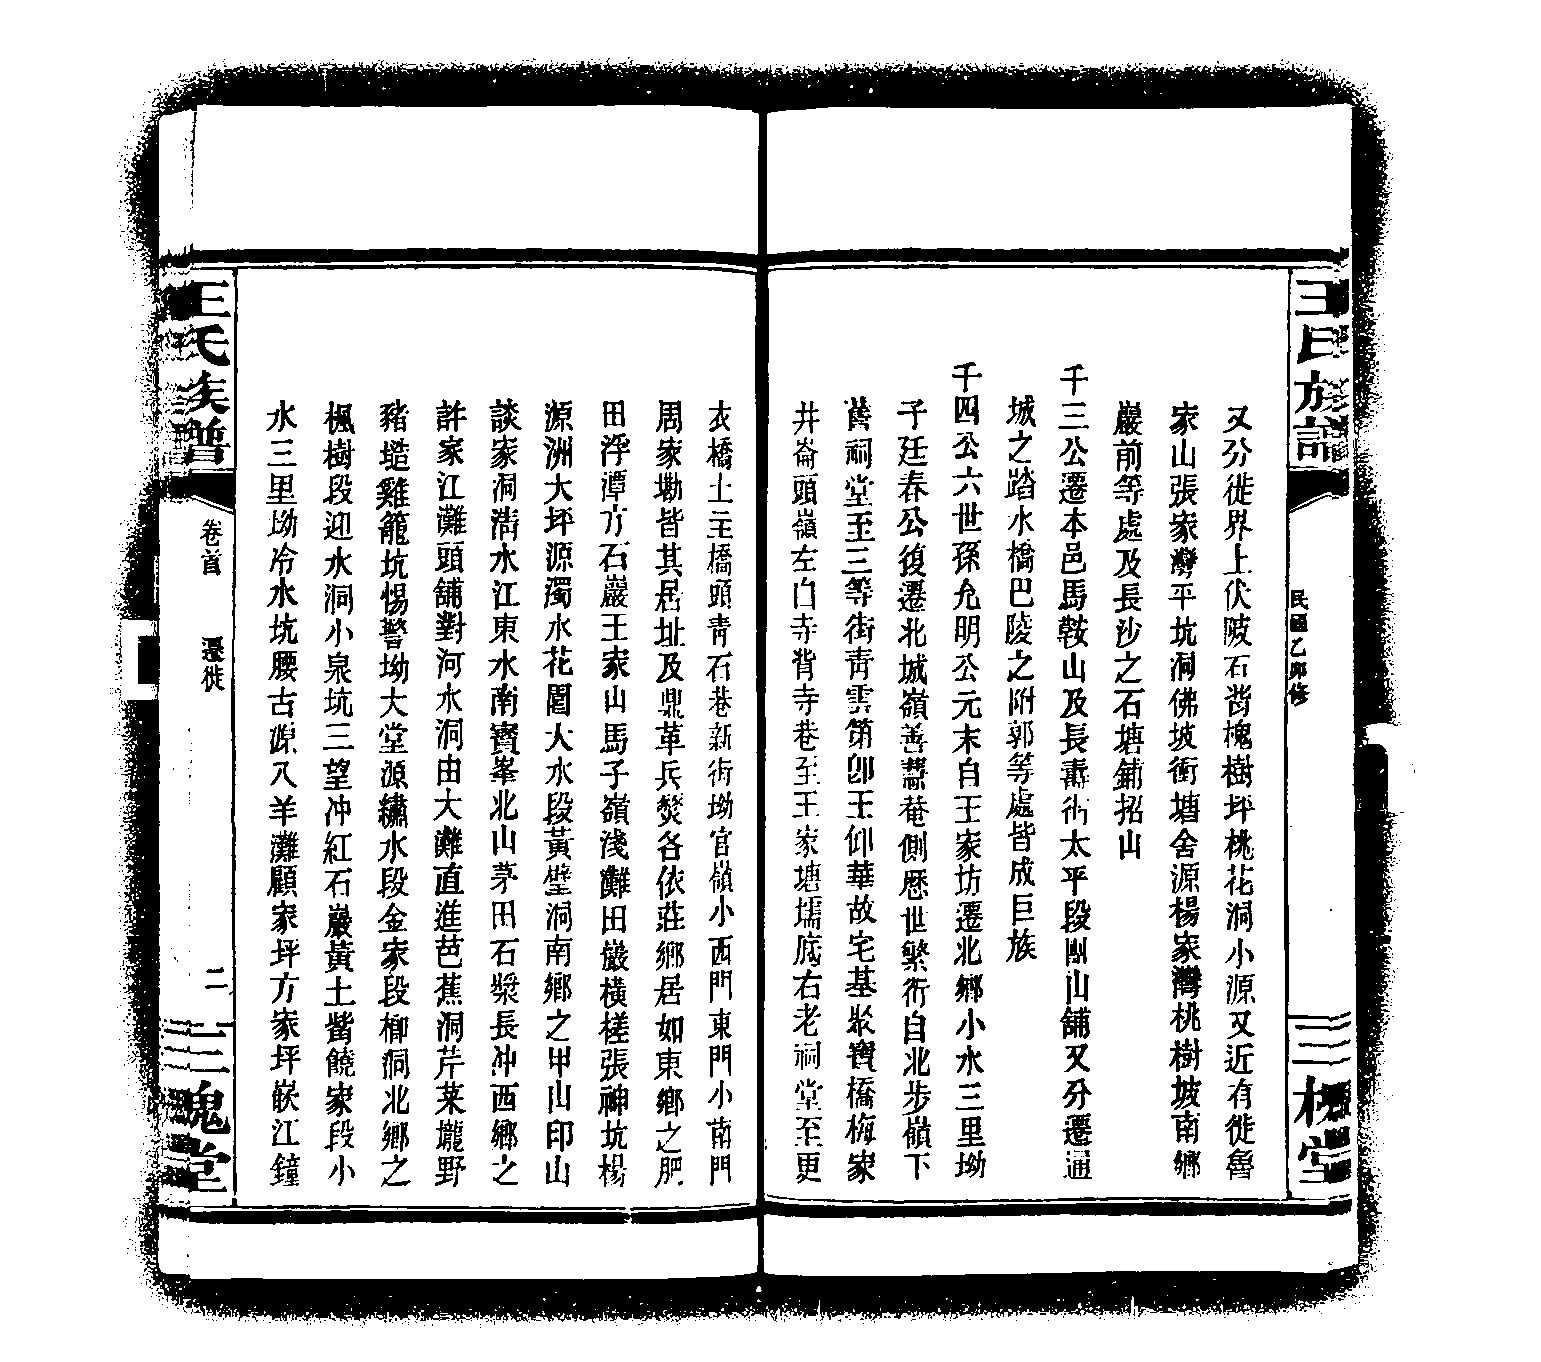 王氏族譜
民國乙卯修
三槐堂
又分徙界上伏陂石背槐樹坪桃花洞小源又近有徙魯
家山張家灣平坑洞佛坡衝塘舍源楊家灣桃樹坡南鄉
巖前等處及長沙之石塘鋪招山
千三公遷本邑馬鞍山及長壽街太平段團山舖又分遷通
城之踏水橋巴陵之附郭等處皆成巨族
千四公六世孫允明公元末自王家坊遷北鄉小水三里坳
子廷春公復遷北城嶺善慧菴側歷世繁衍自北步嶺下
舊祠堂至三等街青雲第卽王仰華故宅基聚寶橋梅家
井崙頭嶺左白寺背寺巷至王家塘壖底右老祠堂至更
衣橋上至橋頭青石巷新街坳官嶺小西門東門小南門
周家墈皆其居址及鼎革兵燹各依莊鄉居如東鄉之肥
田浮潭方石巖王家山馬子嶺淺灘田巖橫槎張神坑楊
源洲大坪源濁水花園大水段黃璧洞南鄉之甲山印山
談家洞淸水江東水南寶峯北山茅田石漿長冲西鄉之
許家江灘頭舖對河水洞由大灘直進芭蕉洞芹菜壠野
豬塅雞籠坑惕警坳大堂源繡水段金家段柳洞北鄉之
楓樹段迎水洞小泉坑三望冲紅石巖黃土嘴饒家段小
水三里坳冷水坑腰古源八羊灘顧家坪方家坪嵌江鐘
王氏族譜
卷首
遷徙
二
三槐堂